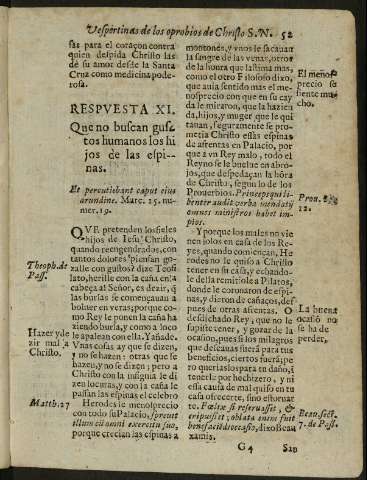 Vespertinas de los oprobios de Christo S.N. 52
sas para el coraçon contra
quien despida Christo las
de su amor desde la Santa
Cruz como medicina pode-
rosa.
RESPVESTA XI.
Que no buscan gus-
tos humanos los hi
jos de las espi-
nas.
Et percutiebant caput eius
arundine. Marc. 15. nu-
mer. 19.
QVE pretenden los fieles
hijos de Iesu Christo,
quando reengendrados, con
tantos dolores piensan go-
zalle con gustos? dize Teofi
lato, herille con la caña en la
cabeça al Señor, es dezir, q̃
las burlas se començauan a
boluer en veras; porque co-
mo Rey le ponen la caña ha
ziendo burla, y como a loco
le apalean con ella. Añade.
Vnas cosas ay que se dizen,
y no se hazen: otras que se
hazen, y no se dizen; pero a
Christo con la insignia le di
zen locuras, y con la caña le
passan las espinas el celebro
Herodes le menospreciò
con todo su Palacio, spreuit
illum cū omni exercitu suo,
porque crecian las espinas a
Theoph. de
Pass.
Hazer y de
zir mal a
Christo.
Matth. 27
montones, y vnos le sacauan
la sangre de las venas, otros
de la honra que lastima mas,
como el otro Filosofo dixo,
que auia sentido mas el me-
nosprecio con que en su cay
da le miraron, que la hazien
da, hijos, y muger que le qui
tauan, seguramente se pro-
metia Christo essas espinas
de afrentas en Palacio, por
que a vn Rey malo, todo el
Reyno se le buelue en abro-
jos, que despedaçan la hōra
de Christo, segun lo de los
Prouerbios. Princeps qui li-
benter audit verba mendatij
omnes ministros habet im-
pios.
Y porque los males no vie
nen solos en casa de los Re-
yes, quando comiençan, He
rodes no le quiso a Christo
tener en su casa, y echando-
le della remitiole a Pilatos,
donde le coronaron de espi-
nas, y dieron de cañaços, des-
pues de otras afrentas. O
desdichado Rey, que no le
supiste tener, y gozar de la
ocasion, pues si los milagros
que desseauas fuerā para tus
beneficios, ciertos fuerā; pe
ro querias los para tu daño, i
tenerle por hechizero, y ni
essa causa de mal quiso en tu
casa ofrecerte, sino estoruar
te. Fœlix si reseruasset, &
eripuisset; oblata enim fuit
benefaciēdi occasio, dixo Beau
xamis.
El menos
precio se
siente mu-
cho.
Prou.
12.
La buena
ocasiō no
se ha de
perder.
Beau. sect.
7. de Pass.
G 4 San